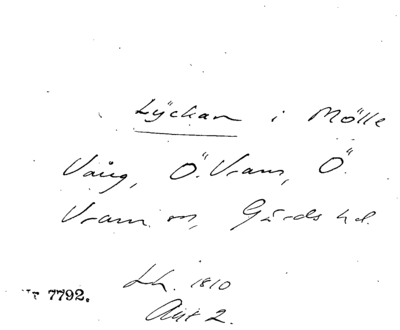 Lyckan i Mölle
Vång, Ö. Vram, Ö.
Vram sn, Gärds hd.
Lh. 1810
Akt 2.
Nr 7792.